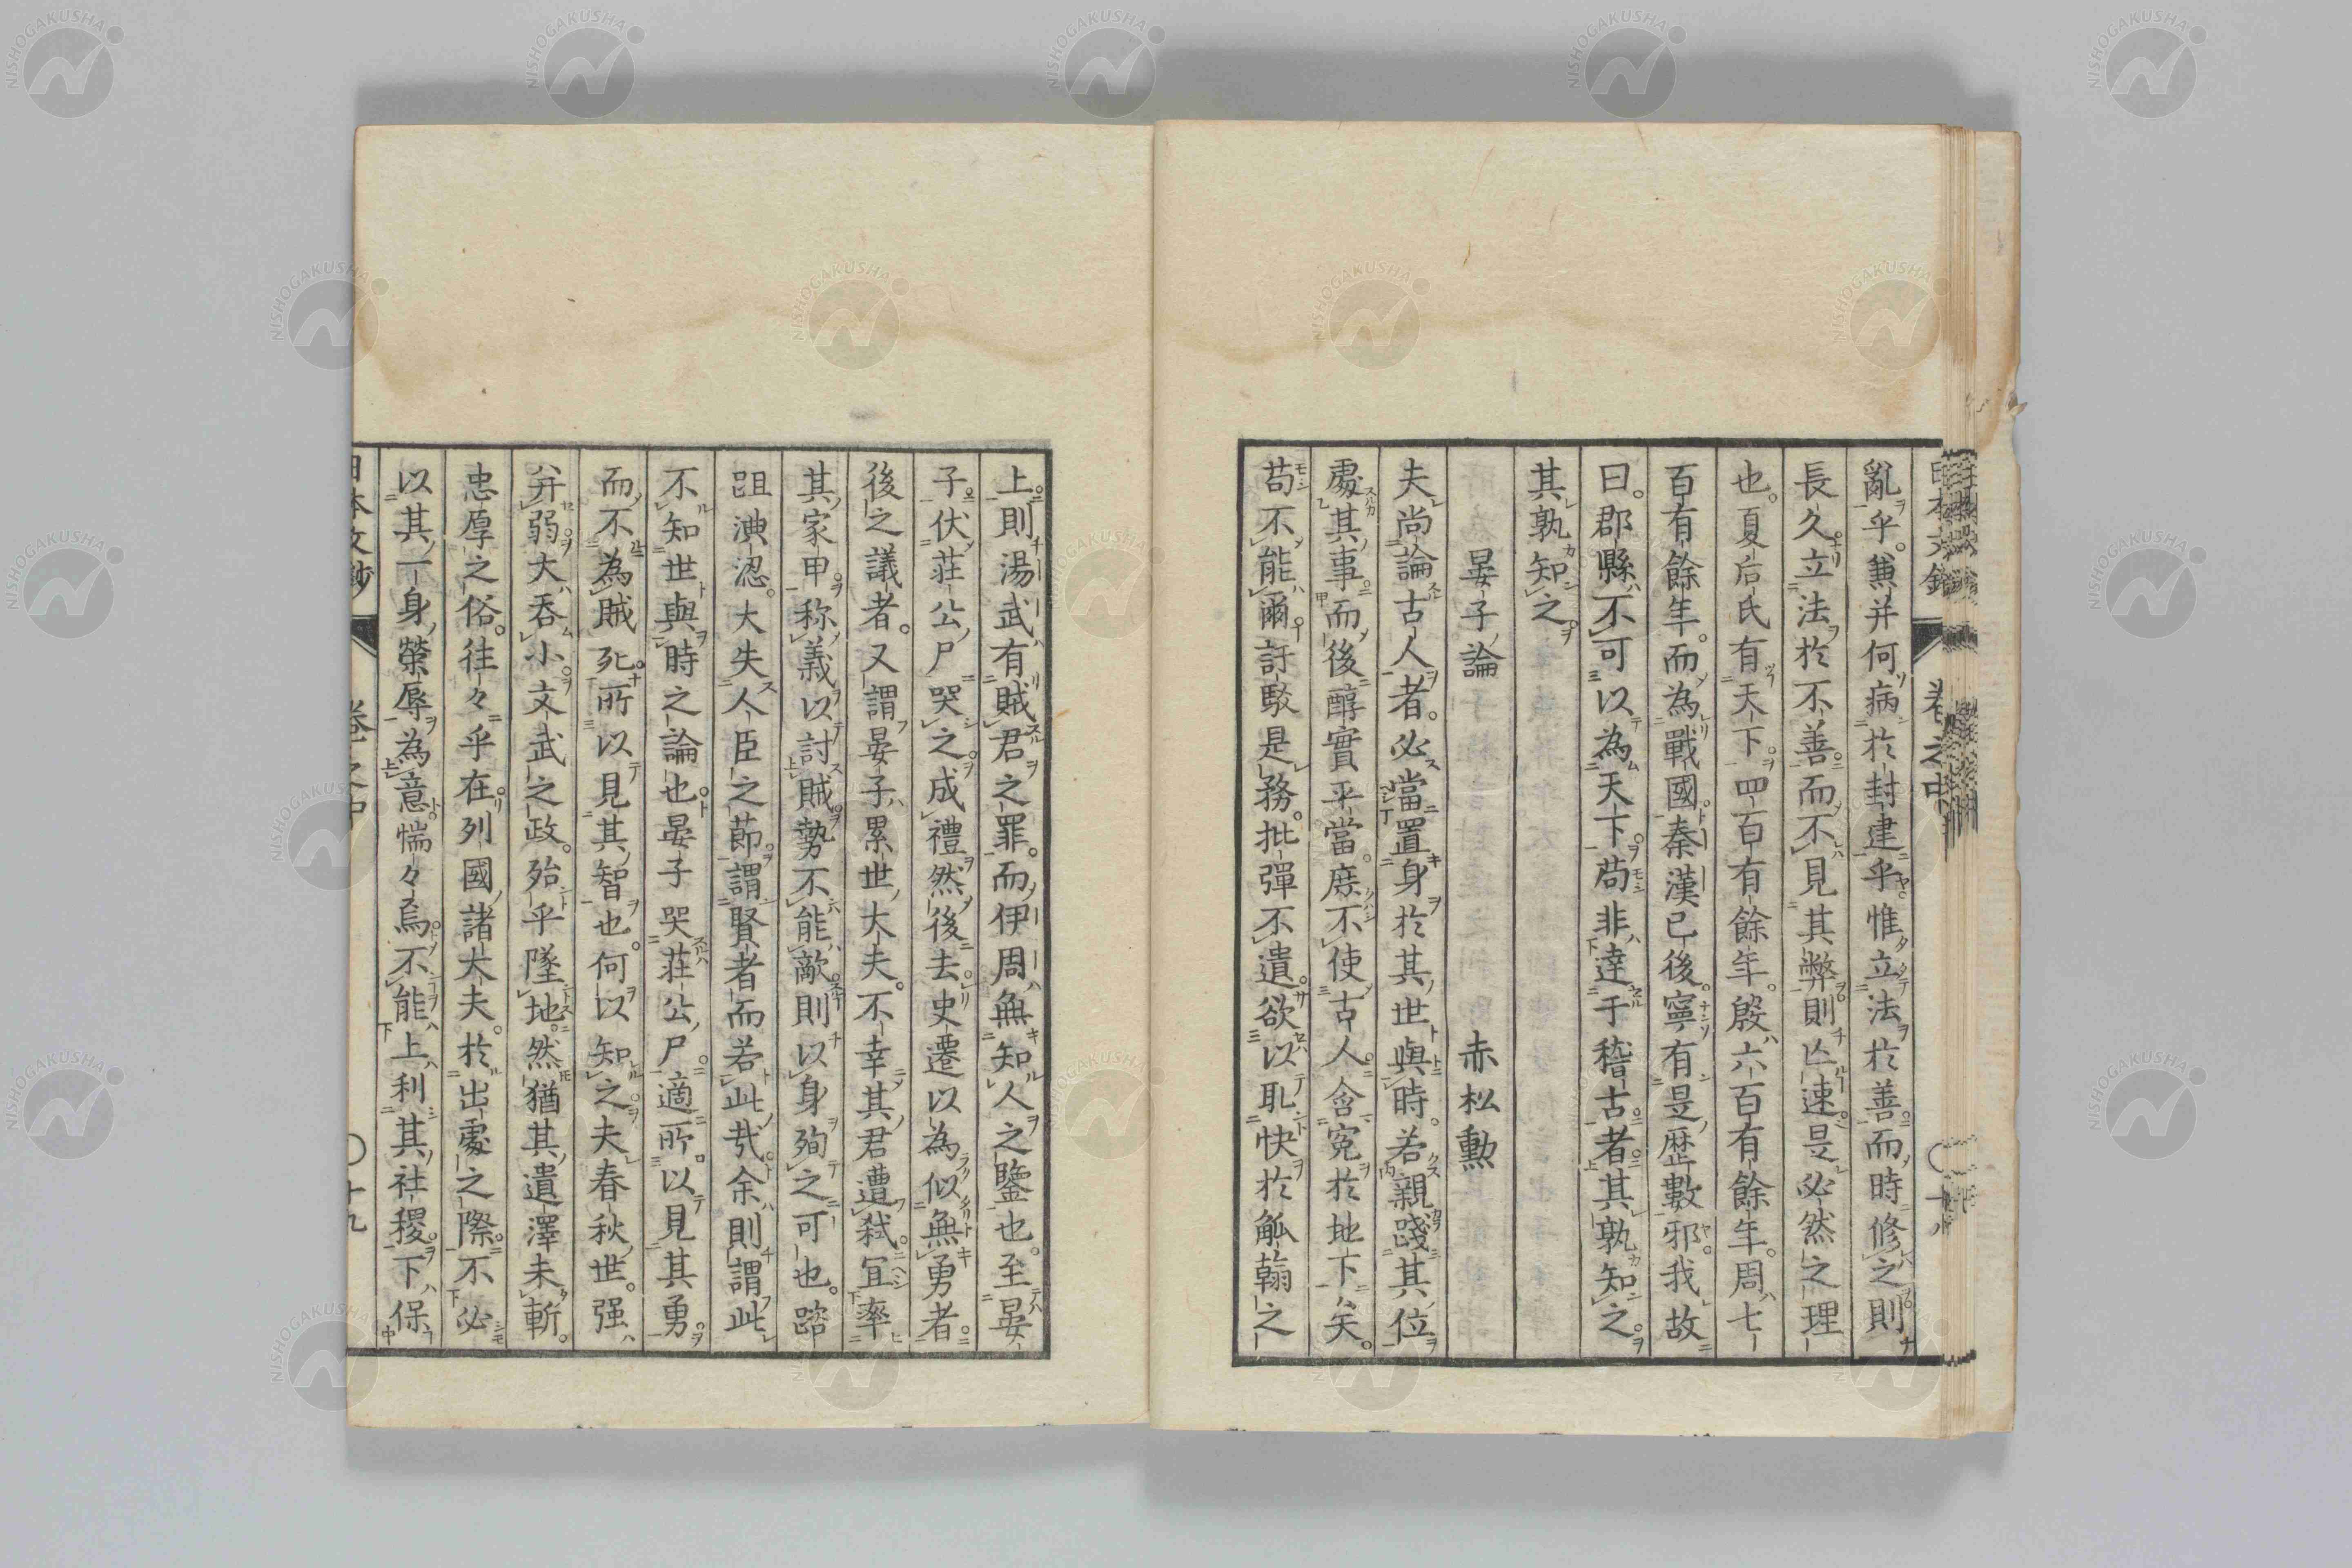 亂乎。兼并何病於封建乎。惟立法於善而時修之則
長久立法於不善而不見其弊則亡速是必然之理
也。夏后氏有天下。四百有餘年。殷六百有餘年。周七
百有餘年。而為戰國秦漢已後。寧有是歴數邪。我故
曰。郡縣不可以為天下。苟非達于稽古者其孰知之
其孰知之。
晏子論　赤松勲
夫尚論古人者。必當置身於其世與時。若親踐其位
處其事而後醇實平當。庶不使古人含寃於地下矣。
苟不能爾訐駁是務。批彈不遺欲以恥快於觚翰之
上。則湯武有賊君之罪。而伊周無知人之鑒也。至晏
子伏荘公尸哭之。成禮然後去。史遷以為似無勇者。
後之議者。又謂晏子累世大夫。不幸其君遭弑。冝率
其家甲称義以討賊勢不能敵則以身殉之可也。蹈
跙淟涊。大失人臣之莭謂賢者而若此哉余則謂此
不知世與時之論也晏子哭荘公尸適所以見其勇。
而不為賊死。所以見其智也。何以知之夫春秋世。强
并弱大吞小。文武之政。殆乎墜地。然猶其遺澤未斬。
忠厚之俗。往々乎在列國諸大夫。於出處之際。不必
以其一身榮辱為意惴々焉不能上利其社稷。下保
日本文鈔　卷之中　〇十八
日本文鈔　卷之中　〇十九
NISHOGAKUSHA